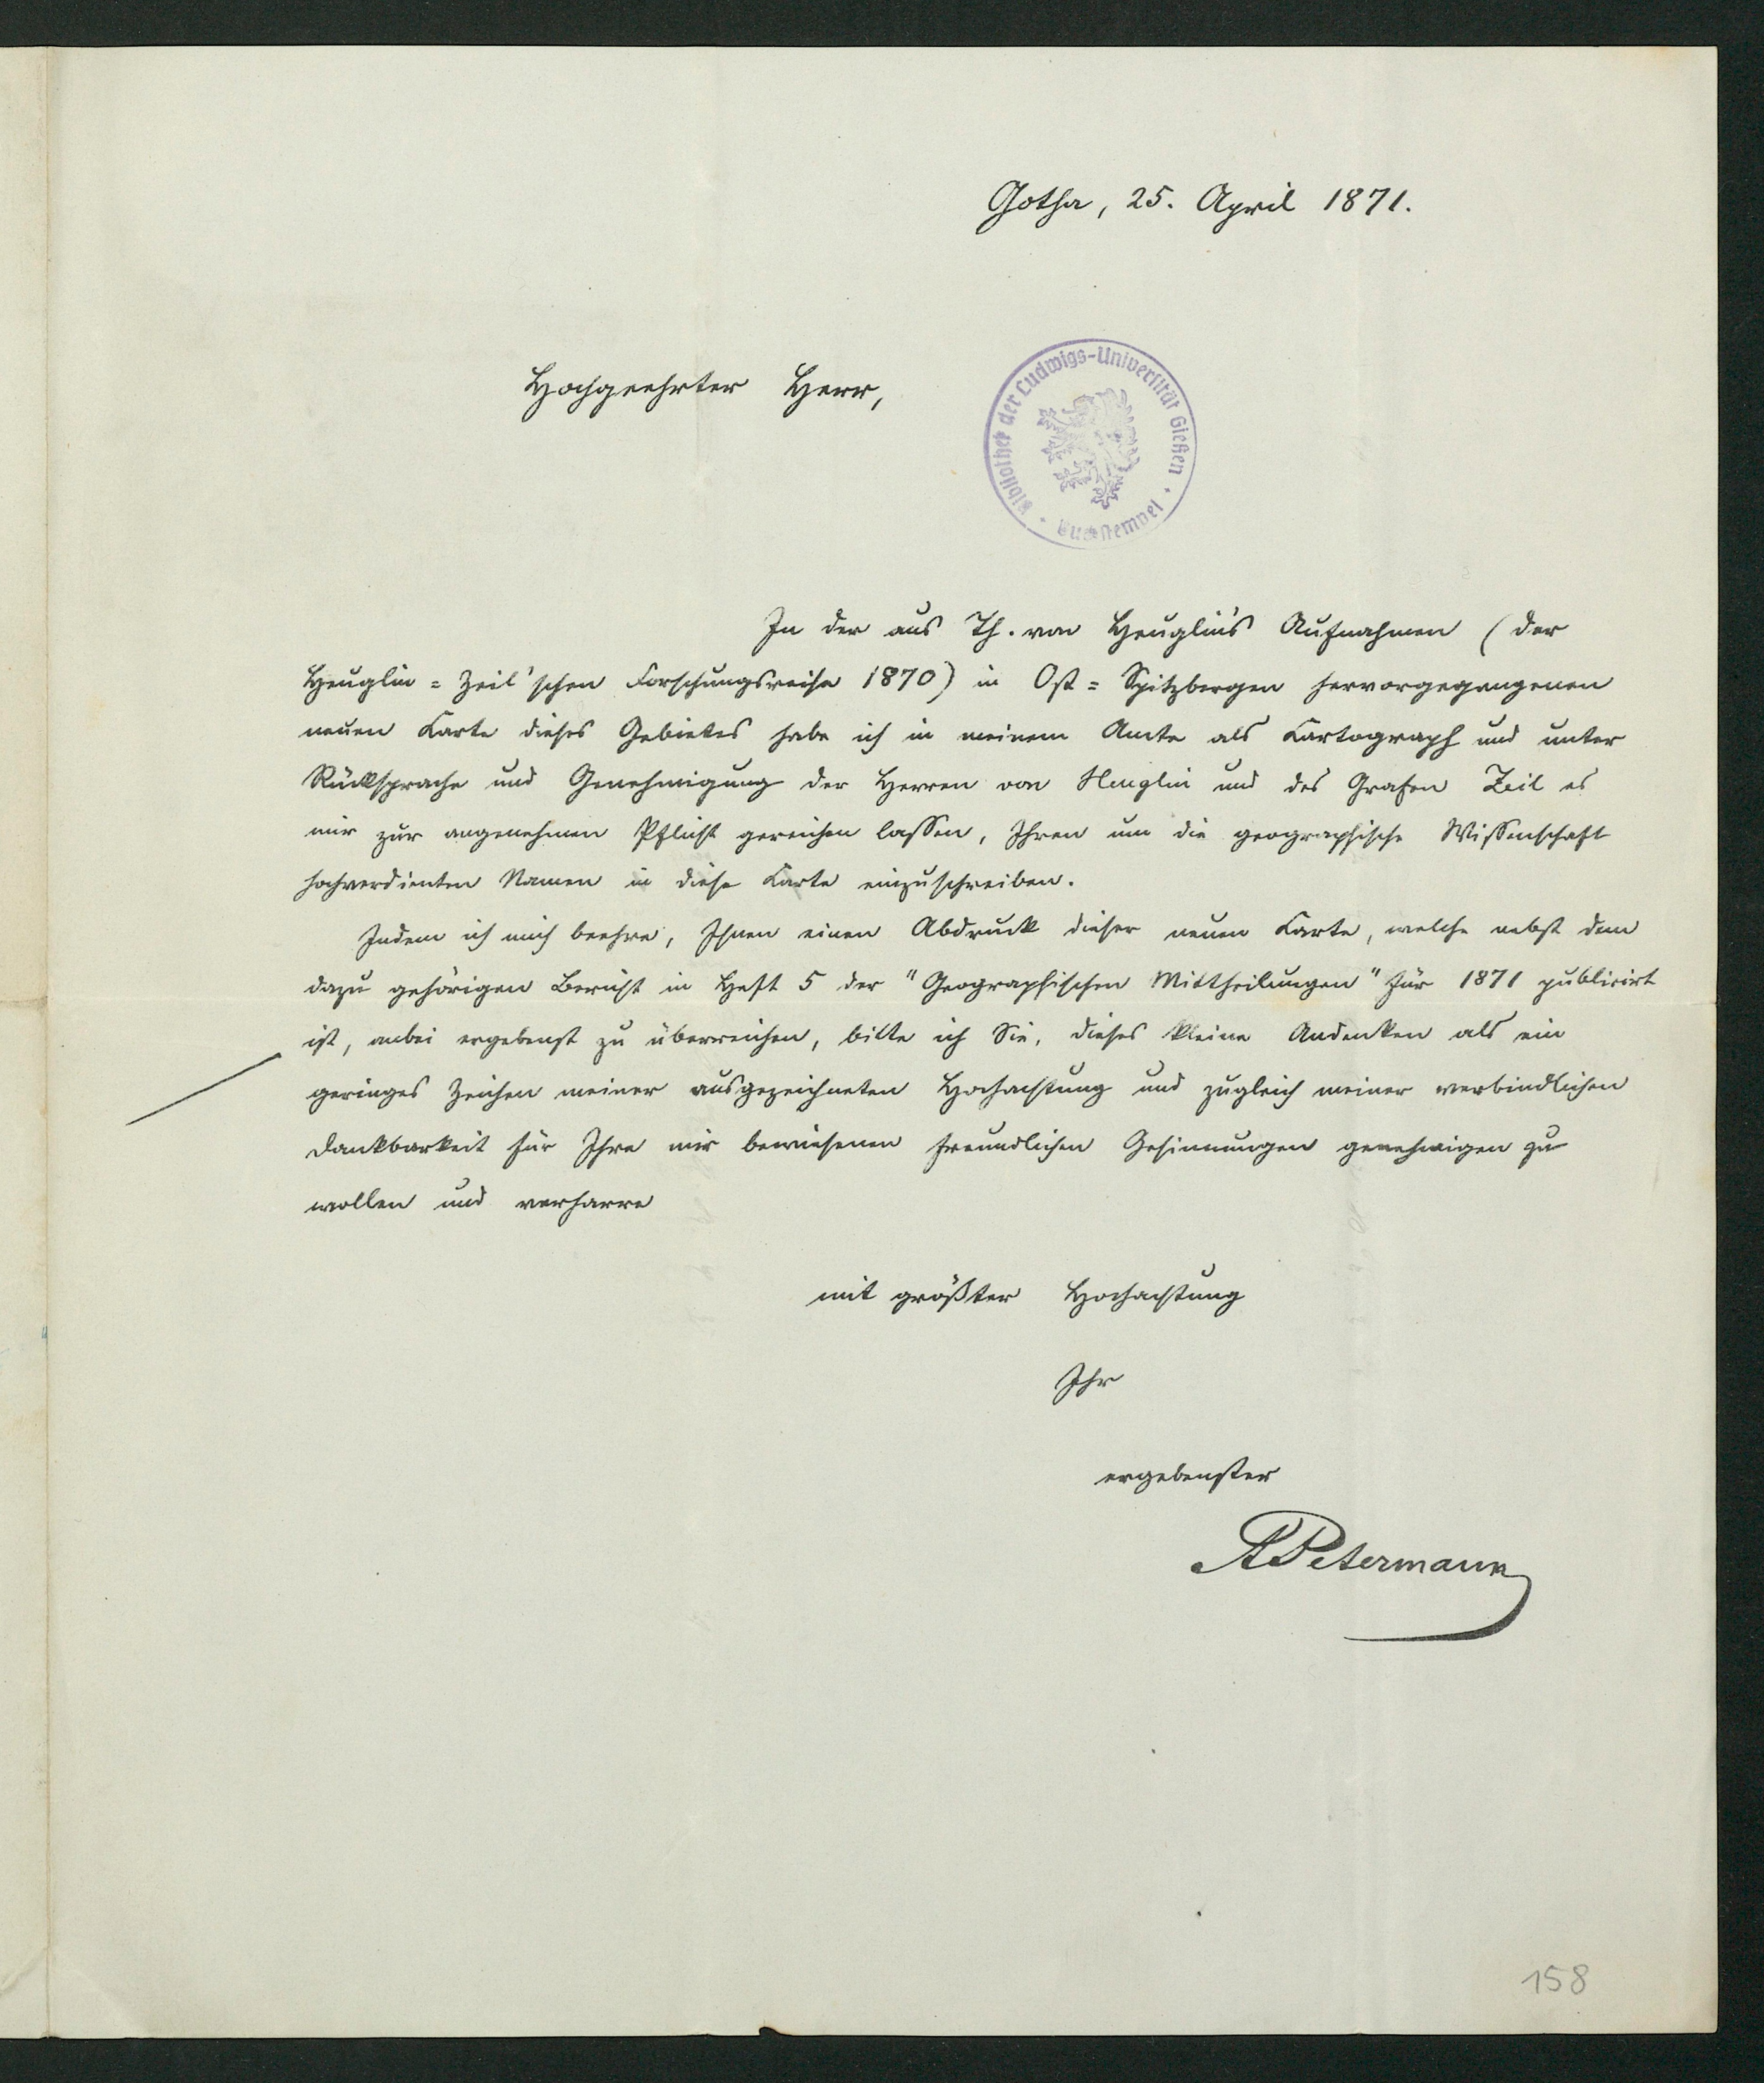 Gotha, 25. April 1871.
Hochgeehrter Herr,
Bibliothek der Ludwigs-Universität Gießen
In der aus Th. von Heuglin's Aufnahmen (der
Heuglin=Zeil'schen Forschungsreise 1870) in Ost=Spitzbergen hervorgegangenen
neuen Karte dieses Gebietes habe ich in meinem Amte als Kartograph und unter
Rücksprache und Genehmigung der Herren von Heuglin und des Grafen Zeil es
mir zur angenehmen Pflicht gereichen lassen, Ihren um die geographische Wissenschaft
hochverdienten Namen in diese Karte einzuschreiben.
Indem ich mich beehre, Ihnen einen Abdruck dieser neuen Karte, welche nebst dem
dazu gehörigen Bericht in Heft 5 der "Geographischen Mittheilungen" für 1871 publicirt
ist, anbei ergebenst zu überreichen, bitte ich Sie, dieses kleine Andenken als ein
geringes Zeichen meiner ausgezeichneten Hochachtung und zugleich meiner verbindlichen
Dankbarkeit für Ihre mir bewiesenen freundlichen Gesinnungen genehmigen zu
wollen und verharre
mit größter Hochachtung
Ihr
ergebenster
A Petermann
158